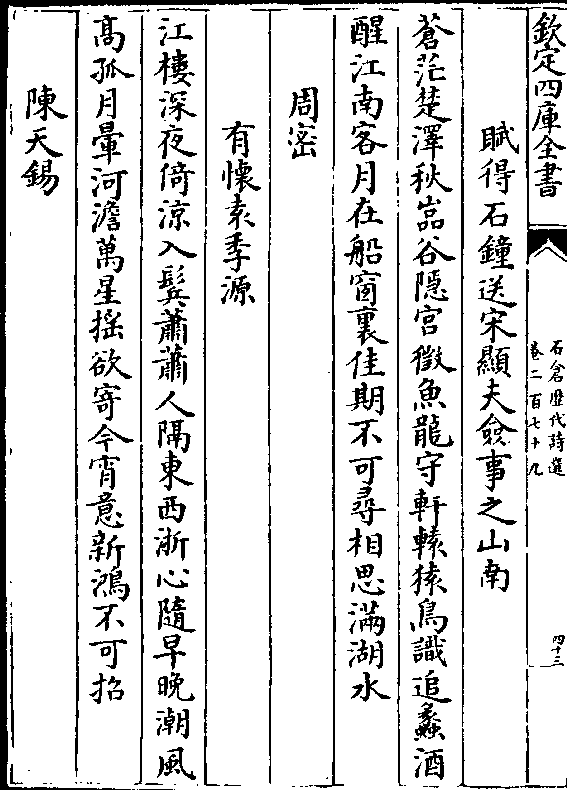 欽定四庫全書
石倉歷代詩選
卷二百七十九
四十三
賦得石鐘送宋顯夫僉事之山南
蒼茫楚澤秋嵓谷隠宫徵魚龍守軒轅猿鳥識追蠡酒
醒江南客月在船窗裏佳期不可尋相思滿湖水
周密
有懐袁季源
江樓深夜倚涼入鬂蕭蕭人隔東西浙心隨早晩潮風
髙孤月暈河澹萬星揺欲寄今宵意新鴻不可招
陳天錫